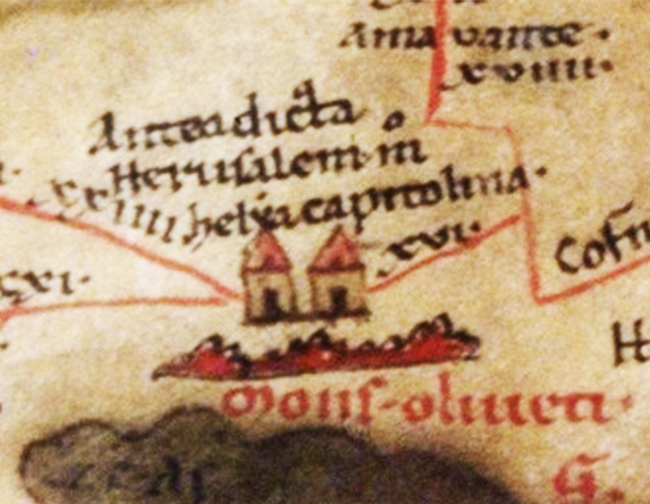 Amavante·
xviiii·
Antea dicta
Herusalem·m̊
helya capitolina·
xxiiii
xvi·
Mons·oliueti·